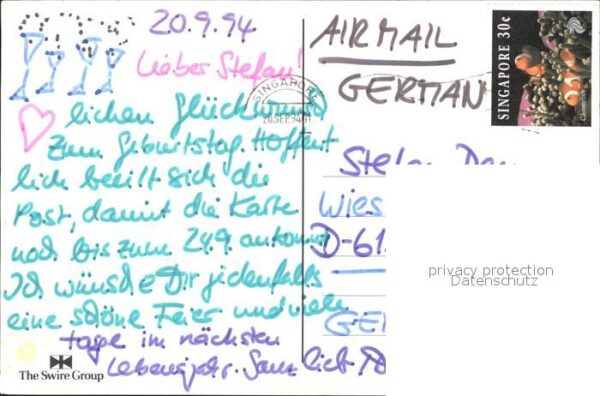 20.9.94
Lieber Stefan!
lichen Glückwunsch
zum Geburtstag. Hoffent
lich beeilt sich die
Post, damit die Karte
noch bis zum 24.9. ankommt
Ich wünsche Dir jedenfalls
eine schöne Feier und viele
tage im nächsten
Lebensjahr. Ganz lieb
The Swire Group
AIRMAIL
GERMAN
SINGAPORE
20 SEP 94
SINGAPORE 30c
Clownfish
Stefan
Wies
D-61
GE
privacy protection
Datenschutz